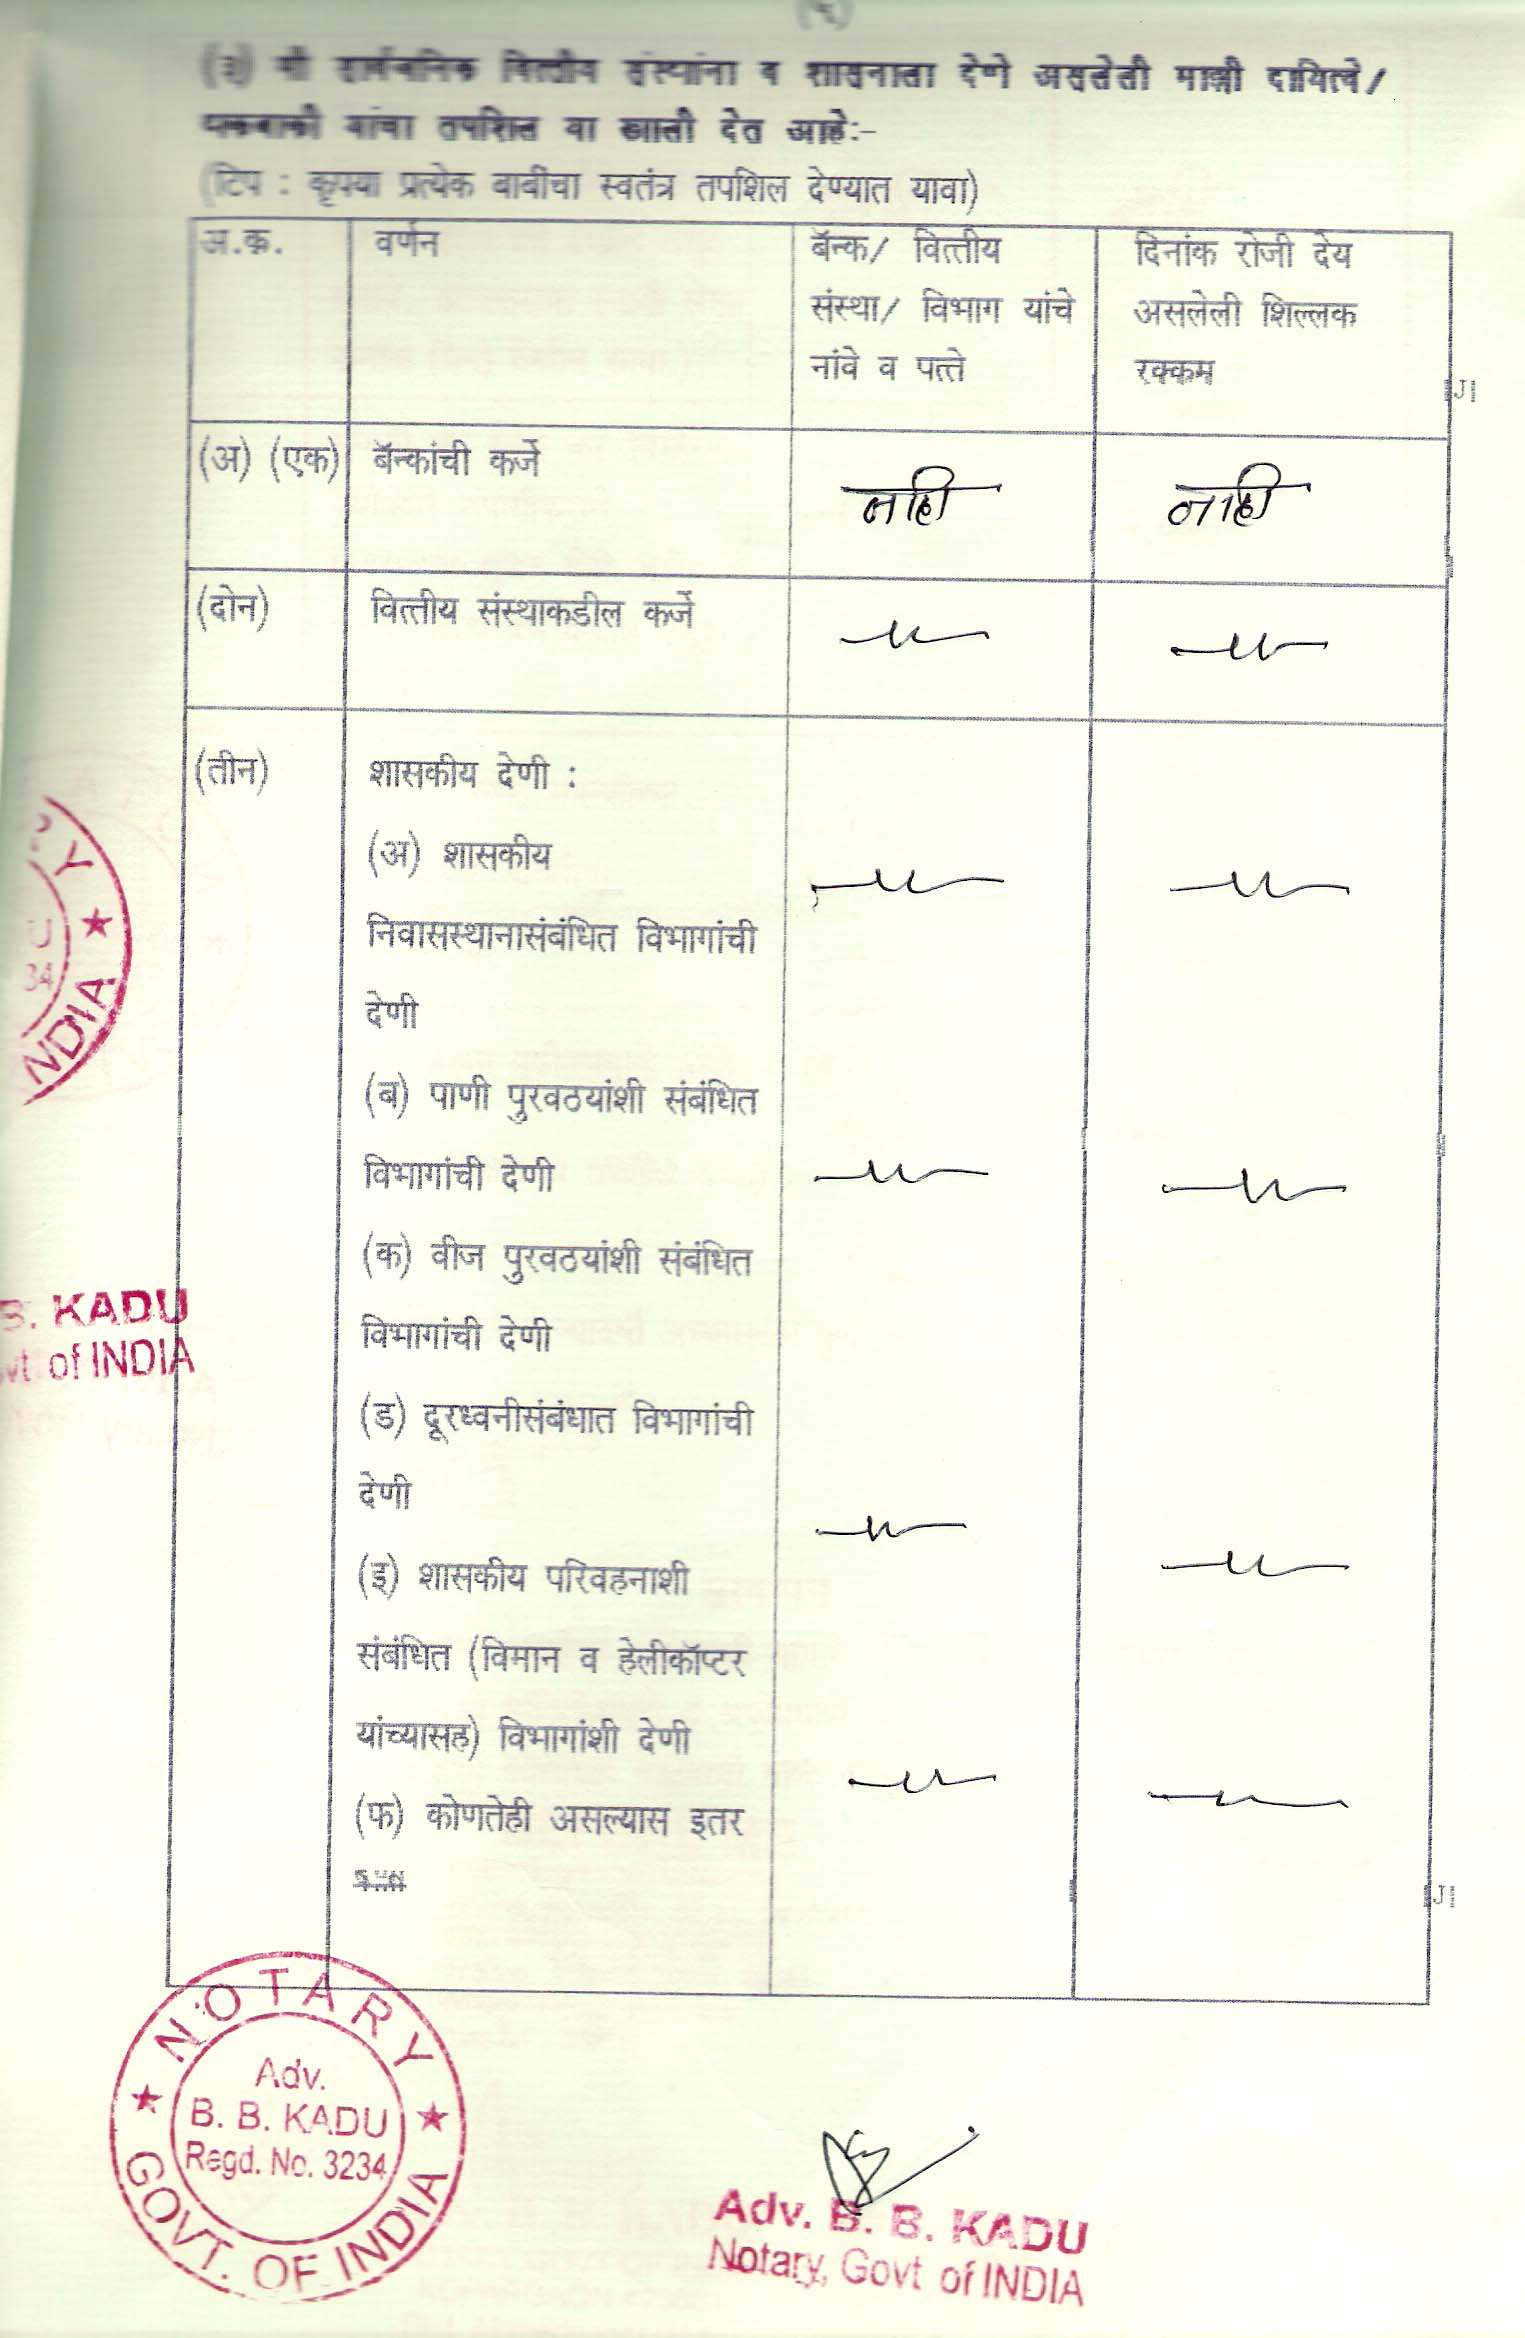 (५)
(३) मी सार्वजनिक वित्तीय संस्थांना व शासनाला देणे असलेली माझी दायित्वे/
थकबाकी यांचा तपशिल या खाली देत आहे:-
(टिप : कृपया प्रत्येक बाबींचा स्वतंत्र तपशिल देण्यात यावा)
अ.क्र. वर्णन बॅन्क/ वित्तीय संस्था/ विभाग यांचे नांवे व पत्ते दिनांक रोजी देय असलेली शिल्लक रक्कम
(अ) (एक) बॅन्कांची कर्जे नाही नाही
(दोन) वित्तीय संस्थाकडील कर्जे —〃— —〃—
(तीन) शासकीय देणी :
(अ) शासकीय
—〃— —〃—
निवासस्थानासंबंधित विभागांची
देणी
(ब) पाणी पुरवठयांशी संबंधित
विभागांची देणी —〃— —〃—
(क) वीज पुरवठयांशी संबंधित
विभागांची देणी
(ड) दूरध्वनीसंबंधात विभागांची
देणी
—〃— —〃—
(इ) शासकीय परिवहनाशी
संबंधित (विमान व हेलीकॉप्टर
यांच्यासह) विभागांशी देणी
—〃— —〃—
(फ) कोणतेही असल्यास इतर
RY ★ INDIA
U
34
B. KADU
vt of INDIA
NOTARY
★ GOVT. OF INDIA ★
Adv.
B. B. KADU
Regd. No. 3234
Adv. B. B. KADU
Notary, Govt of INDIA